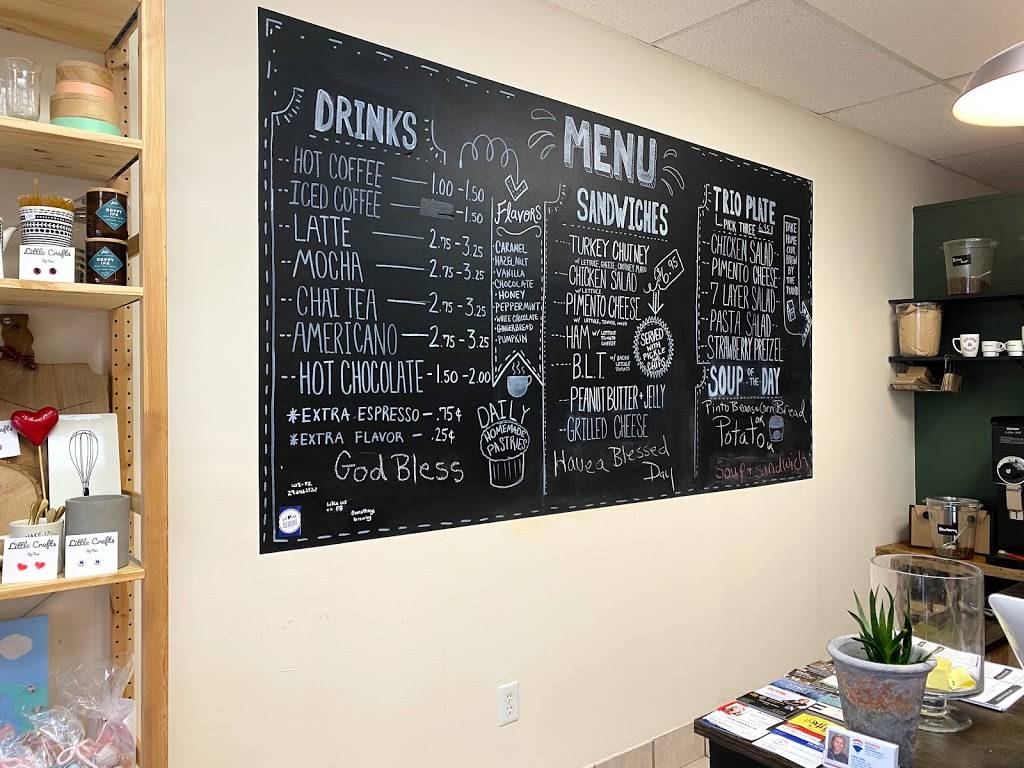 DRINKS
HOT COFFEE 1.00 - 1.50
ICED COFFEE - 1.50
LATTE 2.75 - 3.25
MOCHA 2.75 - 3.25
CHAI TEA 2.75 - 3.25
AMERICANO 2.75 - 3.25
HOT CHOCOLATE - 1.50 - 2.00
*EXTRA ESPRESSO - .75¢
*EXTRA FLAVOR - .25¢
God Bless
Like us
on FB
Something
brewing
Flavors
CARAMEL
HAZELNUT
VANILLA
CHOCOLATE
HONEY
PEPPERMINT
WHITE CHOCOLATE
GINGERBREAD
PUMPKIN
DAILY
HOMEMADE
PASTRIES
MENU
SANDWICHES
TURKEY CHUTNEY
W/ LETTUCE, CHEESE, CHUTNEY MAYO
CHICKEN SALAD
W/ LETTUCE
PIMENTO CHEESE
W/ LETTUCE, TOMATO, MAYO
HAM W/ LETTUCE
TOMATO
B.L.T. W/ BACON
LETTUCE
TOMATO
PEANUT BUTTER + JELLY
GRILLED CHEESE
$6.95
SERVED
WITH
PICKLE
CHIPS
Have a Blessed
Day
TRIO PLATE
PICK THREE
CHICKEN SALAD
PIMENTO CHEESE
7 LAYER SALAD
PASTA SALAD
STRAWBERRY PRETZEL
TAKE
HOME OUR
BREW
BY THE
POUND
SOUP OF THE DAY
Pinto Beans & Corn Bread
or
Potato
Soup + Sandwich
Little Crafts
HOPPY
IPA
Little Crafts
Little Crafts